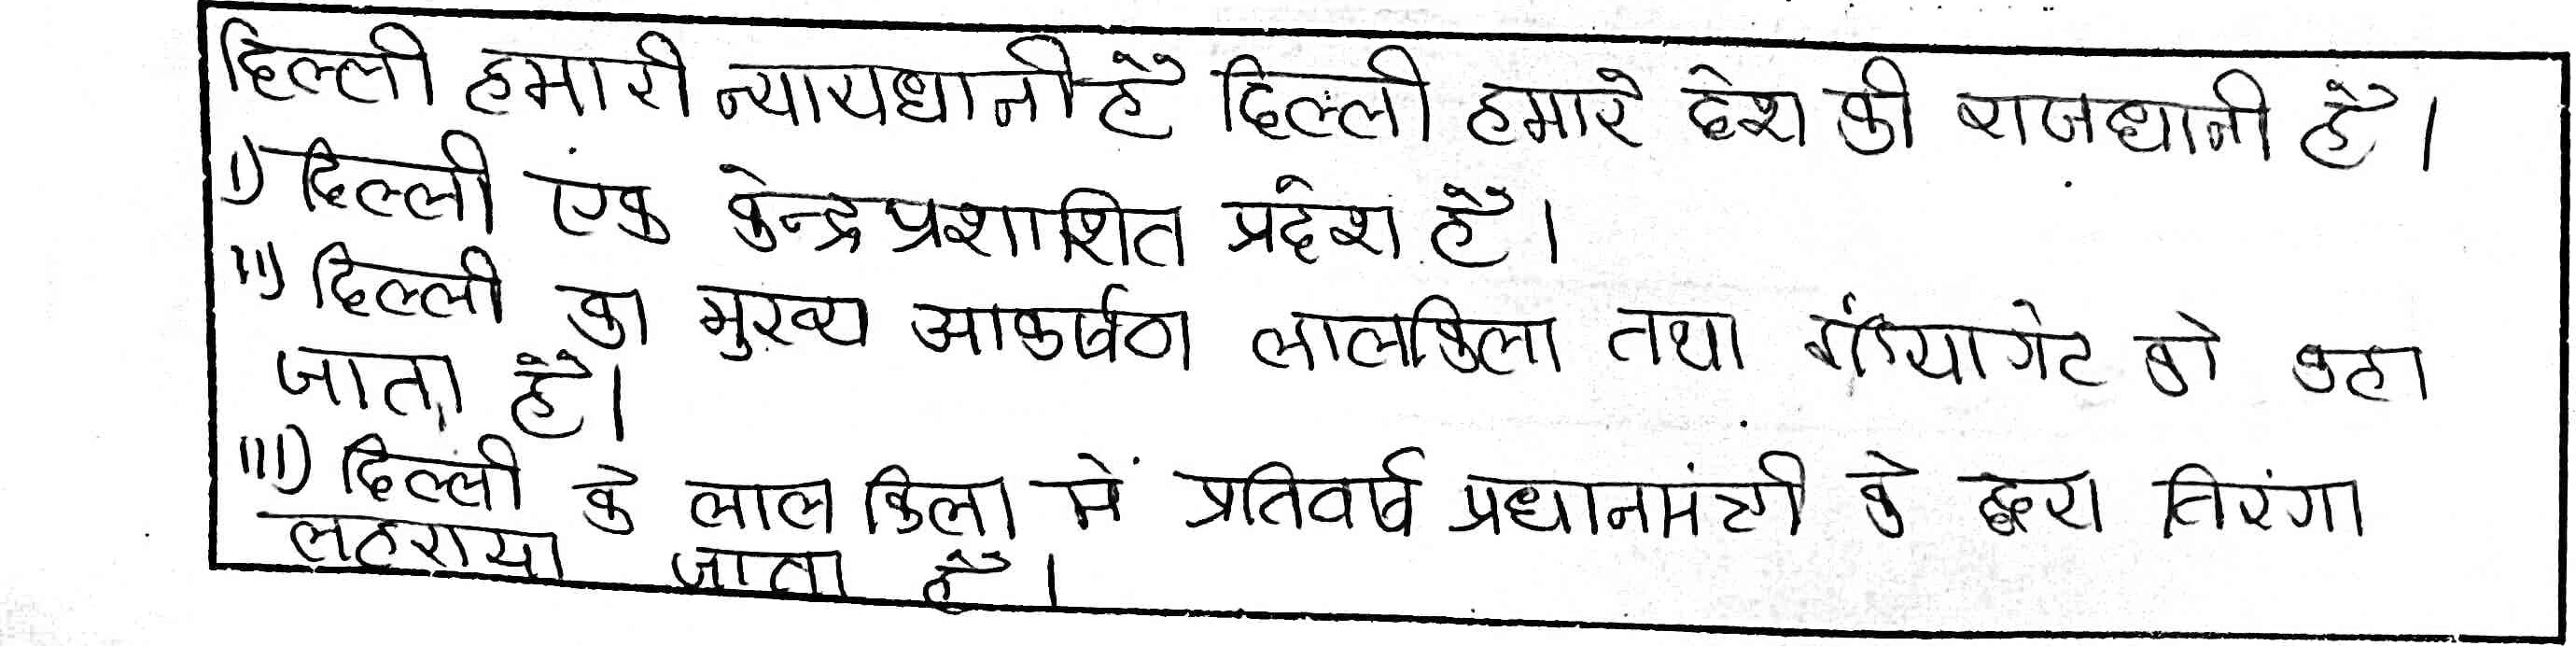 दिल्ली हमारी न्यायधानी है दिल्ली हमारे देश की राजधानी है।
I) दिल्ली एक केन्द्रप्रशाशित प्रदेश है।
II) दिल्ली का मुख्य आकर्षण लालकिला तथा गेट को कहा
जाता है।
III) दिल्ली के लाल किला में प्रतिवर्ष प्रधानमंत्री के द्वारा तिरंगा
लहराया जाता है।